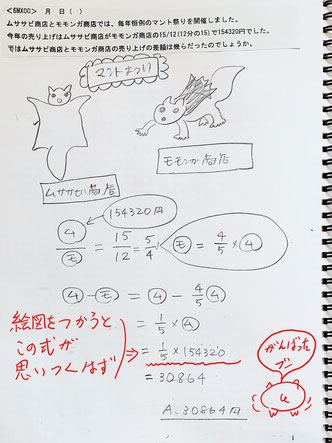 <6MX00> 月 日( )
ムササビ商店とモモンガ商店では、毎年恒例のマント祭りを開催しました。
今年の売り上げはムササビ商店がモモンガ商店の15/12(12分の15)で154320円でした。
ではムササビ商店とモモンガ商店の売り上げの差額は幾らだったのでしょうか。
マントまつり
ムササビ商店
モモンガ商店
154320円
ム/モ = 15/12 = 5/4
モ = 4/5 × ム
ム - モ = ム - 4/5 ム
= 1/5 × ム
= 1/5 × 154320
= 30864
A. 30864円
絵図をつかうと
この式が
思いつくはず
がんばった
ブン